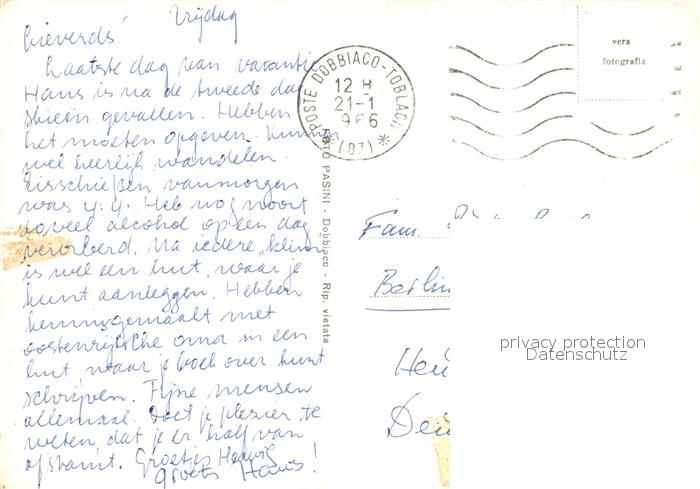 Vrijdag
Lieverds!
Laatste dag van vacantie
Hans is na de tweede dag
skieën gevallen. Hebben
het moeten opgeven. Kunnen
wel heerlijk wandelen.
Eisschießen vanmorgen
was y.y. Heb nog nooit
zoveel alcohol op een dag
verorberd. Na iedere „klim"
is wel een hut, waar je
kunt aanleggen. Hebben
kennisgemaakt met
oostenrijkse oma in een
hut waar je boek over kunt
schrijven. Fijne mensen
allemaal. Doet je plezier te
weten, dat je er half van
afstamt. Groetjes Hedwig
groets Hans!
POSTE DOBBIACO-TOBLACH
12 H
21-1
966
* (BZ) *
FOTO PASINI - Dobbiaco - Rip. vietata
vera
fotografia
Fam.
Berlin
privacy protection
Datenschutz